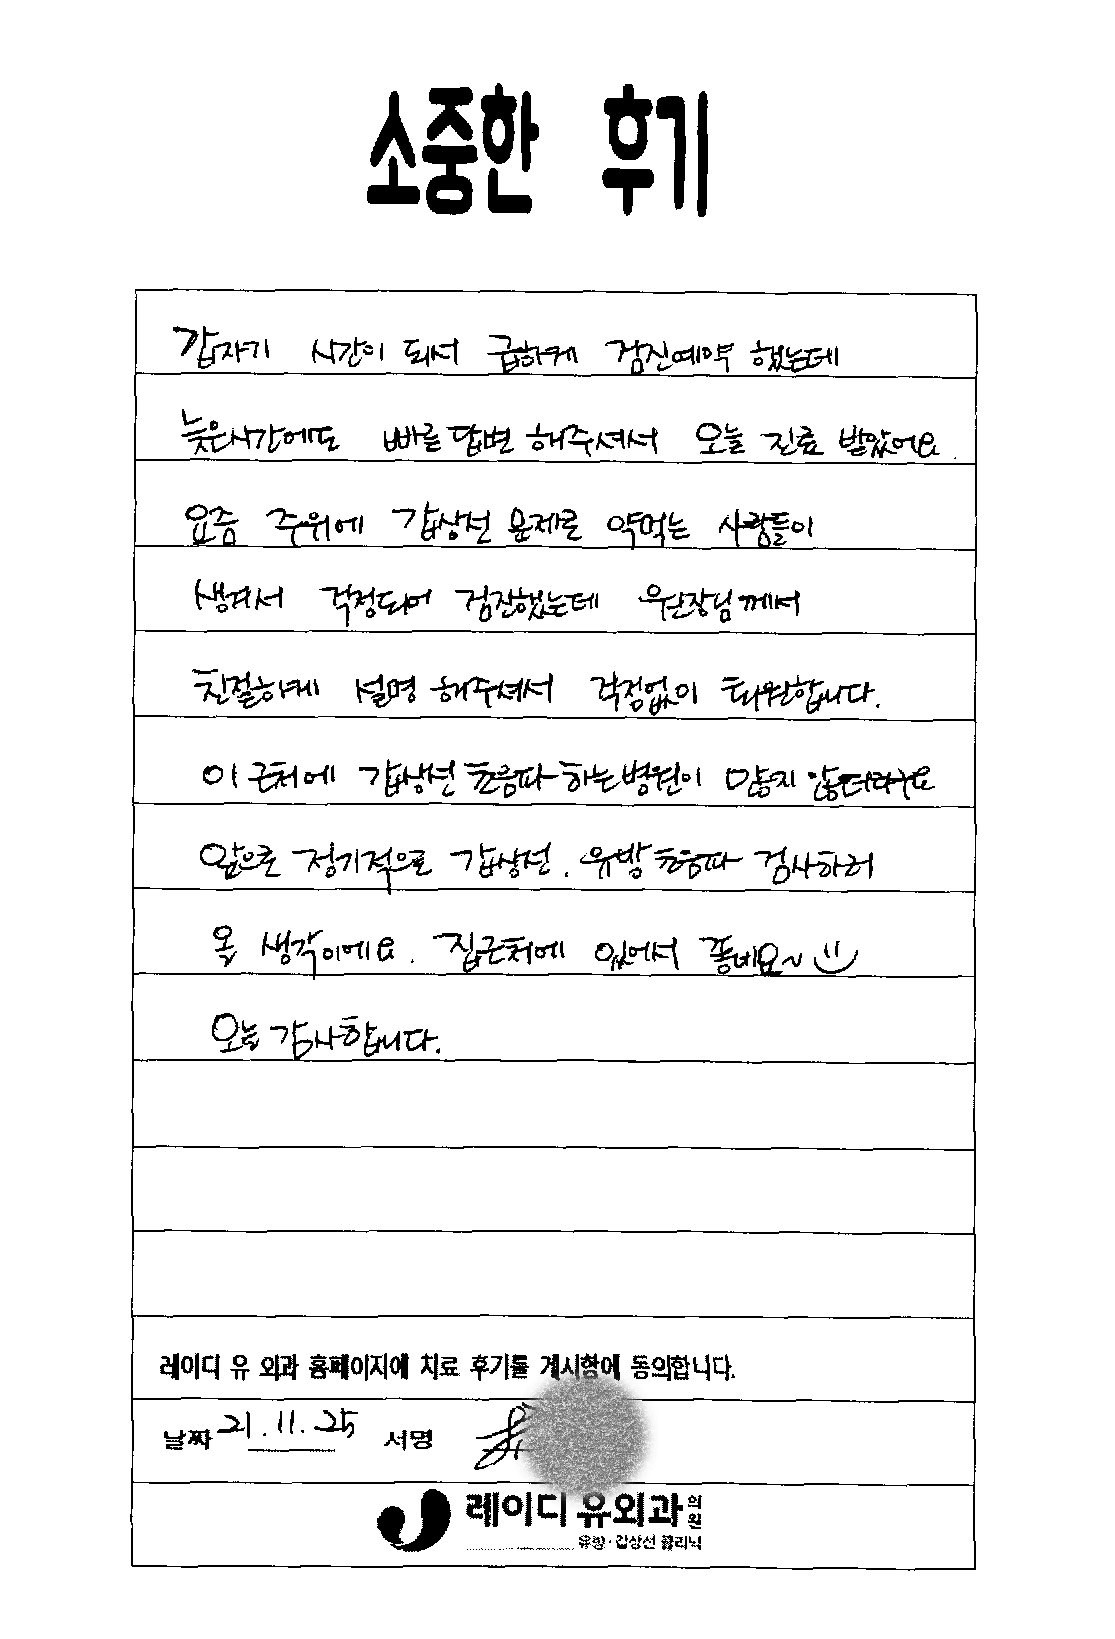 소중한 후기
갑자기 시간이 되서 급하게 검진예약 했는데
늦은시간에도 빠른답변 해주셔서 오늘 진료 받았어요.
요즘 주위에 갑상선 문제로 약먹는 사람들이
생겨서 걱정되어 검진했는데 유원장님께서
친절하게 설명 해주셔서 걱정없이 퇴원합니다.
이 근처에 갑상선 초음파 하는병원이 많지 않더라구요
앞으로 정기적으로 갑상선, 유방 초음파 검사하러
올 생각이에요. 집근처에 있어서 좋네요~
오늘 감사합니다.
레이디 유 외과 홈페이지에 치료 후기를 게시함에 동의합니다.
날짜 21.11.25 서명
레이디유외과의원
유방·갑상선 클리닉